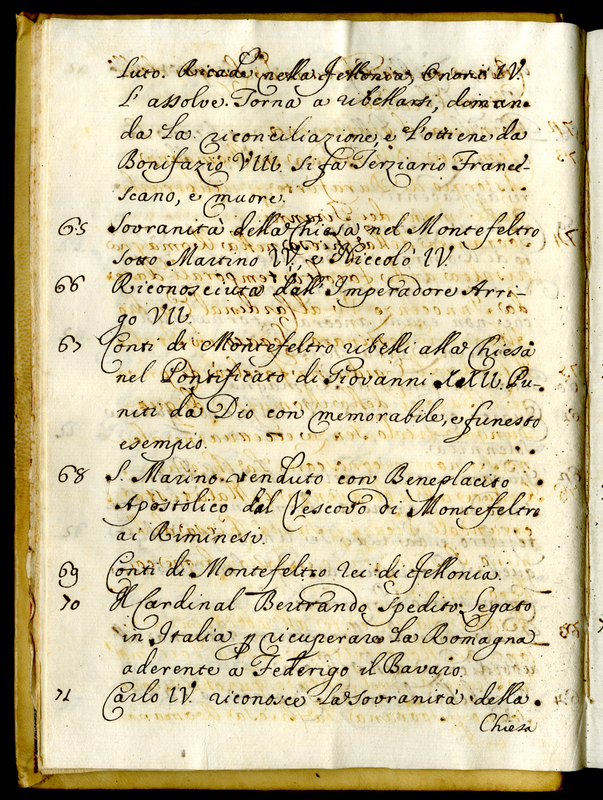 luto. Ricade nella fellonia, Onorio IV.
l'assolve. Torna a ribellarsi, diman-
da la riconciliazione, e l'ottiene da
Bonifazio VIII. Si fa Terziario France-
scano, e muore.
65 Sovranità della Chiesa nel Montefeltro
sotto Martino IV, e Niccolò IV.
66 Riconosciuta dall'Imperadore Arri-
go VII.
67 Conti di Montefeltro ribelli alla Chiesa
nel Pontificato di Giovanni XXII. Pu-
niti da Dio con memorabile, e funesto
esempio.
68 S. Marino venduto con Beneplacito
Apostolico dal Vescovo di Montefeltro
ai Riminesi.
69 Conti di Montefeltro rei di fellonia.
70 Il Cardinal Bertrando spedito Legato
in Italia p ricuperare la Romagna
aderente a Federigo il Bavaro.
71 Carlo IV. riconosce la sovranità della
Chiesa